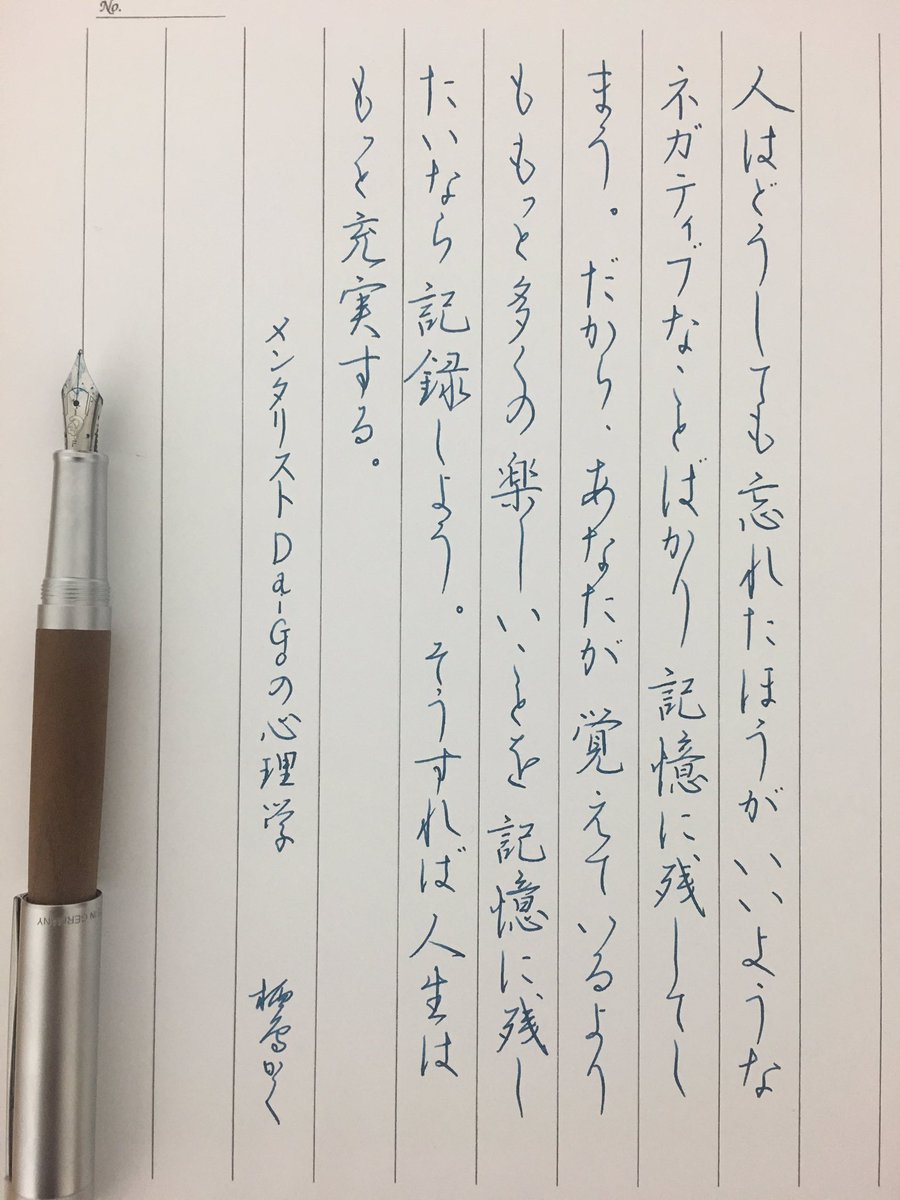 No.
人はどうしても忘れたほうがいいような
ネガティブなことばかり記憶に残してし
まう。だから、あなたが覚えているより
ももっと多くの楽しいことを記憶に残し
たいなら記録しよう。そうすれば人生は
もっと充実する。
メンタリストDaiGoの心理学
かく
IN GERMANY